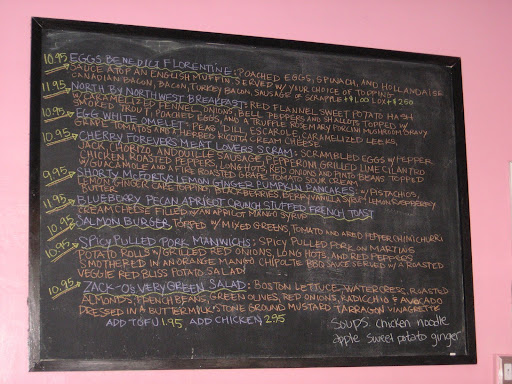 10.95 EGGS BENEDICT FLORENTINE: POACHED EGGS, SPINACH, AND HOLLANDAISE
SAUCE ATOP AN ENGLISH MUFFIN SERVED W/ YOUR CHOICE OF TOPPING
CANADIAN BACON, BACON, TURKEY BACON, SAUSAGE OR SCRAPPLE LOX + $2.50
11.95 NORTH BY NORTHWEST BREAKFAST: RED FLANNEL SWEET POTATO HASH
W/ CARAMELIZED FENNEL, ONIONS, BELL PEPPERS AND SHALLOTS TOPPED W/
SMOKED TROUT, POACHED EGGS, AND A TRUFFLE ROSEMARY PORCINI MUSHROOM GRAVY
10.95 EGG WHITE OMELET: PEAS, DILL, ESCAROLE, CARAMELIZED LEEKS,
GRAPE TOMATOES AND A HERBED YOGURT CREAM CHEESE
10.95 CHERRY FOREVERS MEAT LOVERS SCRAM: SCRAMBLED EGGS W/ PEPPER
JACK, CHORIZO, ANDOUILLE SAUSAGE, PEPPERONI, GRILLED LIME CILANTRO
CHICKEN, ROASTED PEPPERS, LONG HOTS, RED ONIONS AND PINTO BEANS TOPPED
W/ GUACAMOLE AND A FIRE ROASTED GRAPE TOMATO SOUR CREAM
9.95 SHORTY MCFORTYS LEMON GINGER PUMPKIN PANCAKES: W/ PISTACHIOS,
LEMON GINGER CAKE TOPPING, BLACKBERRIES, BERRY VANILLA SYRUP, LEMON RASPBERRY
BUTTER
11.95 BLUEBERRY PECAN APRICOT CRUNCH STUFFED FRENCH TOAST
CREAM CHEESE FILLED W/ AN APRICOT MANGO SYRUP
10.95 SALMON BURGER TOPPED W/ MIXED GREENS, TOMATO AND A RED PEPPER CHIMICHURRI
10.95 SPICY PULLED PORK MANWICHS: SPICY PULLED PORK ON MARTINS
POTATO ROLLS W/ GRILLED RED ONIONS, LONG HOTS, AND RED PEPPERS
SMOTHERED IN AN ORANGE MANGO CHIPOTLE BBQ SAUCE SERVED W/ A ROASTED
VEGGIE RED BLISS POTATO SALAD
10.95 ZACK-O'S VERY GREEN SALAD: BOSTON LETTUCE, WATERCRESS, ROASTED
ALMONDS, FRENCH BEANS, GREEN OLIVES, RED ONIONS, RADICCHIO & AVOCADO
DRESSED IN A BUTTERMILK STONE GROUND MUSTARD TARRAGON VINAGRETTE
ADD TOFU 1.95, ADD CHICKEN 2.95
SOUPS: chicken noodle
apple sweet potato ginger